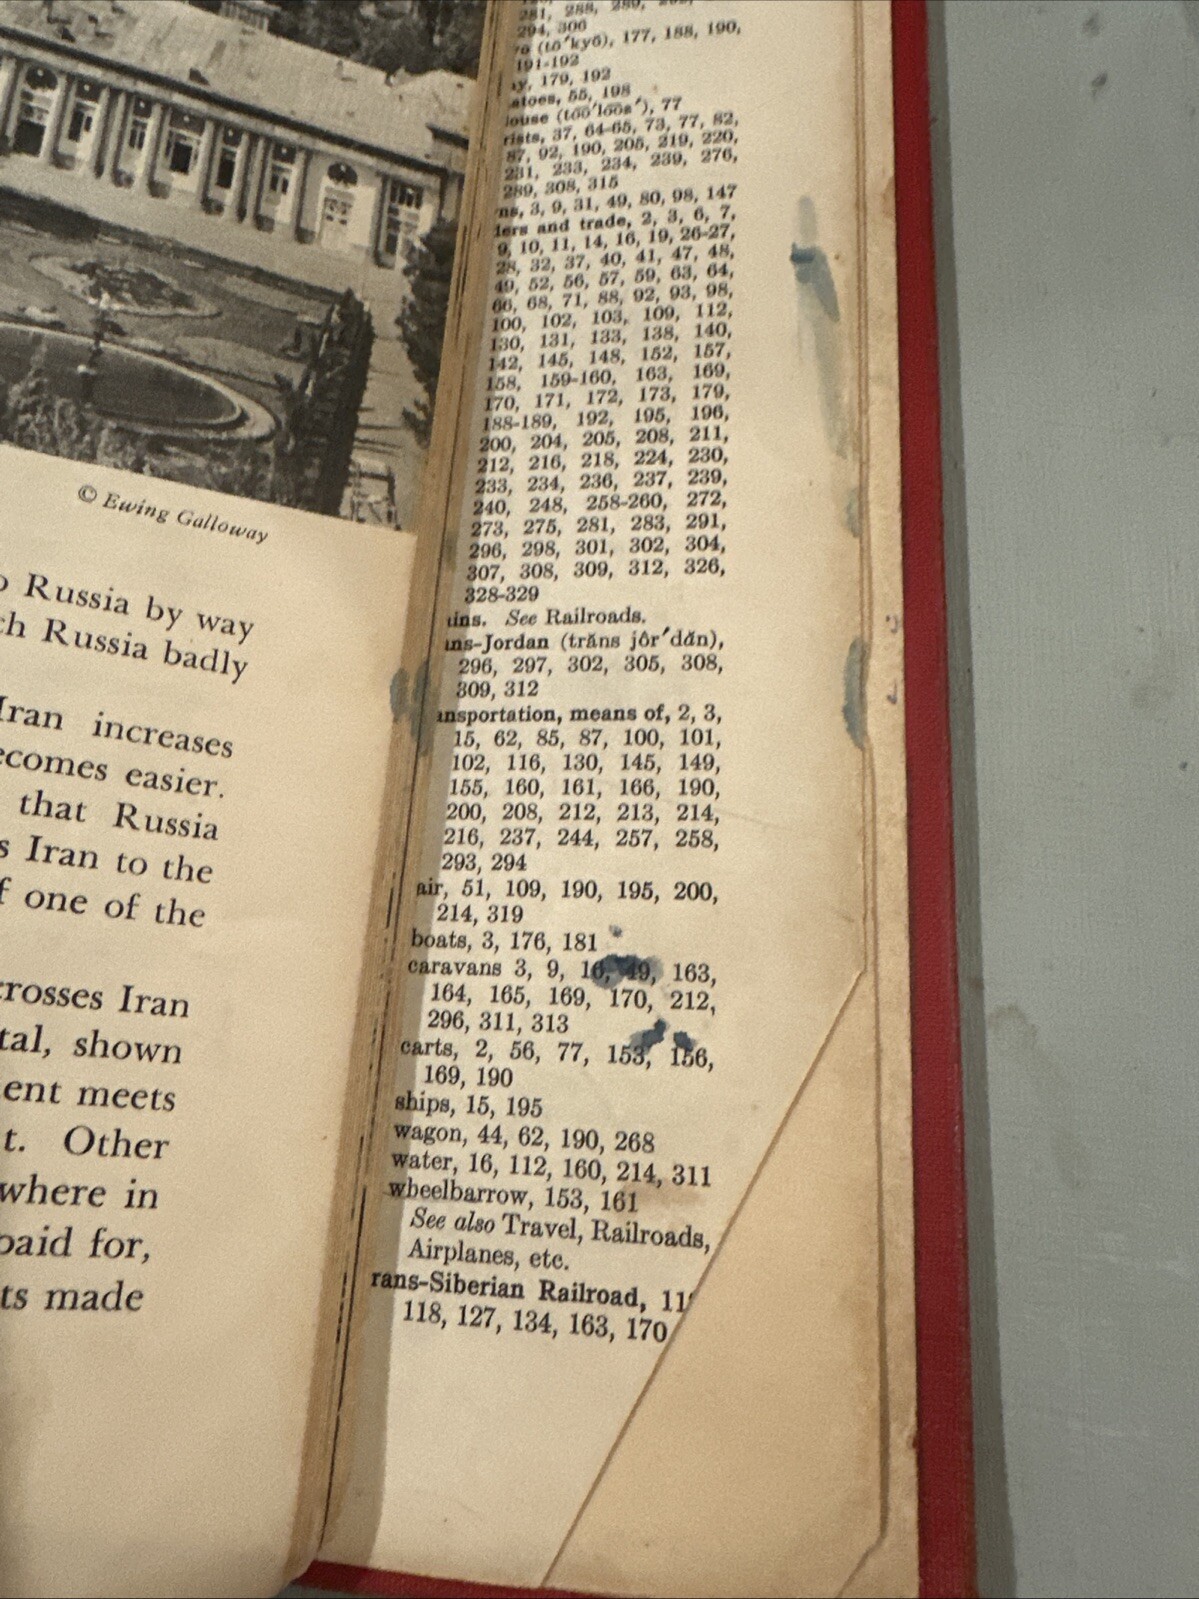 © Ewing Galloway
Russia by way
Russia badly
Iran increases
becomes easier.
that Russia
Iran to the
of one of the
crosses Iran
shown
meets
t. Other
where in
paid for,
made
281, 288, 289,
294, 306
(tō′kyō), 177, 188, 190,
191-192
179, 192
atoes, 55, 198
louse (tōō′lōōz′), 77
rists, 37, 64-65, 73, 77, 82,
87, 92, 190, 205, 219, 220,
231, 233, 234, 239, 276,
289, 308, 315
ns, 3, 9, 31, 49, 80, 98, 147
ders and trade, 2, 3, 6, 7,
9, 10, 11, 14, 16, 19, 26-27,
28, 32, 37, 40, 41, 47, 48,
49, 52, 56, 57, 59, 63, 64,
66, 68, 71, 88, 92, 93, 98,
100, 102, 103, 109, 112,
130, 131, 133, 138, 140,
142, 145, 148, 152, 157,
158, 159-160, 163, 169,
170, 171, 172, 173, 179,
188-189, 192, 195, 196,
200, 204, 205, 208, 211,
212, 216, 218, 224, 230,
233, 234, 236, 237, 239,
240, 248, 258-260, 272,
273, 275, 281, 283, 291,
296, 298, 301, 302, 304,
307, 308, 309, 312, 326,
328-329
ains. See Railroads.
ans-Jordan (trăns jôr′dăn),
296, 297, 302, 305, 308,
309, 312
ansportation, means of, 2, 3,
15, 62, 85, 87, 100, 101,
102, 116, 130, 145, 149,
155, 160, 161, 166, 190,
200, 208, 212, 213, 214,
216, 237, 244, 257, 258,
293, 294
air, 51, 109, 190, 195, 200,
214, 319
boats, 3, 176, 181
caravans 3, 9, 16, 49, 163,
164, 165, 169, 170, 212,
296, 311, 313
carts, 2, 56, 77, 153, 156,
169, 190
ships, 15, 195
wagon, 44, 62, 190, 268
water, 16, 112, 160, 214, 311
wheelbarrow, 153, 161
See also Travel, Railroads,
Airplanes, etc.
rans-Siberian Railroad,
118, 127, 134, 163, 170